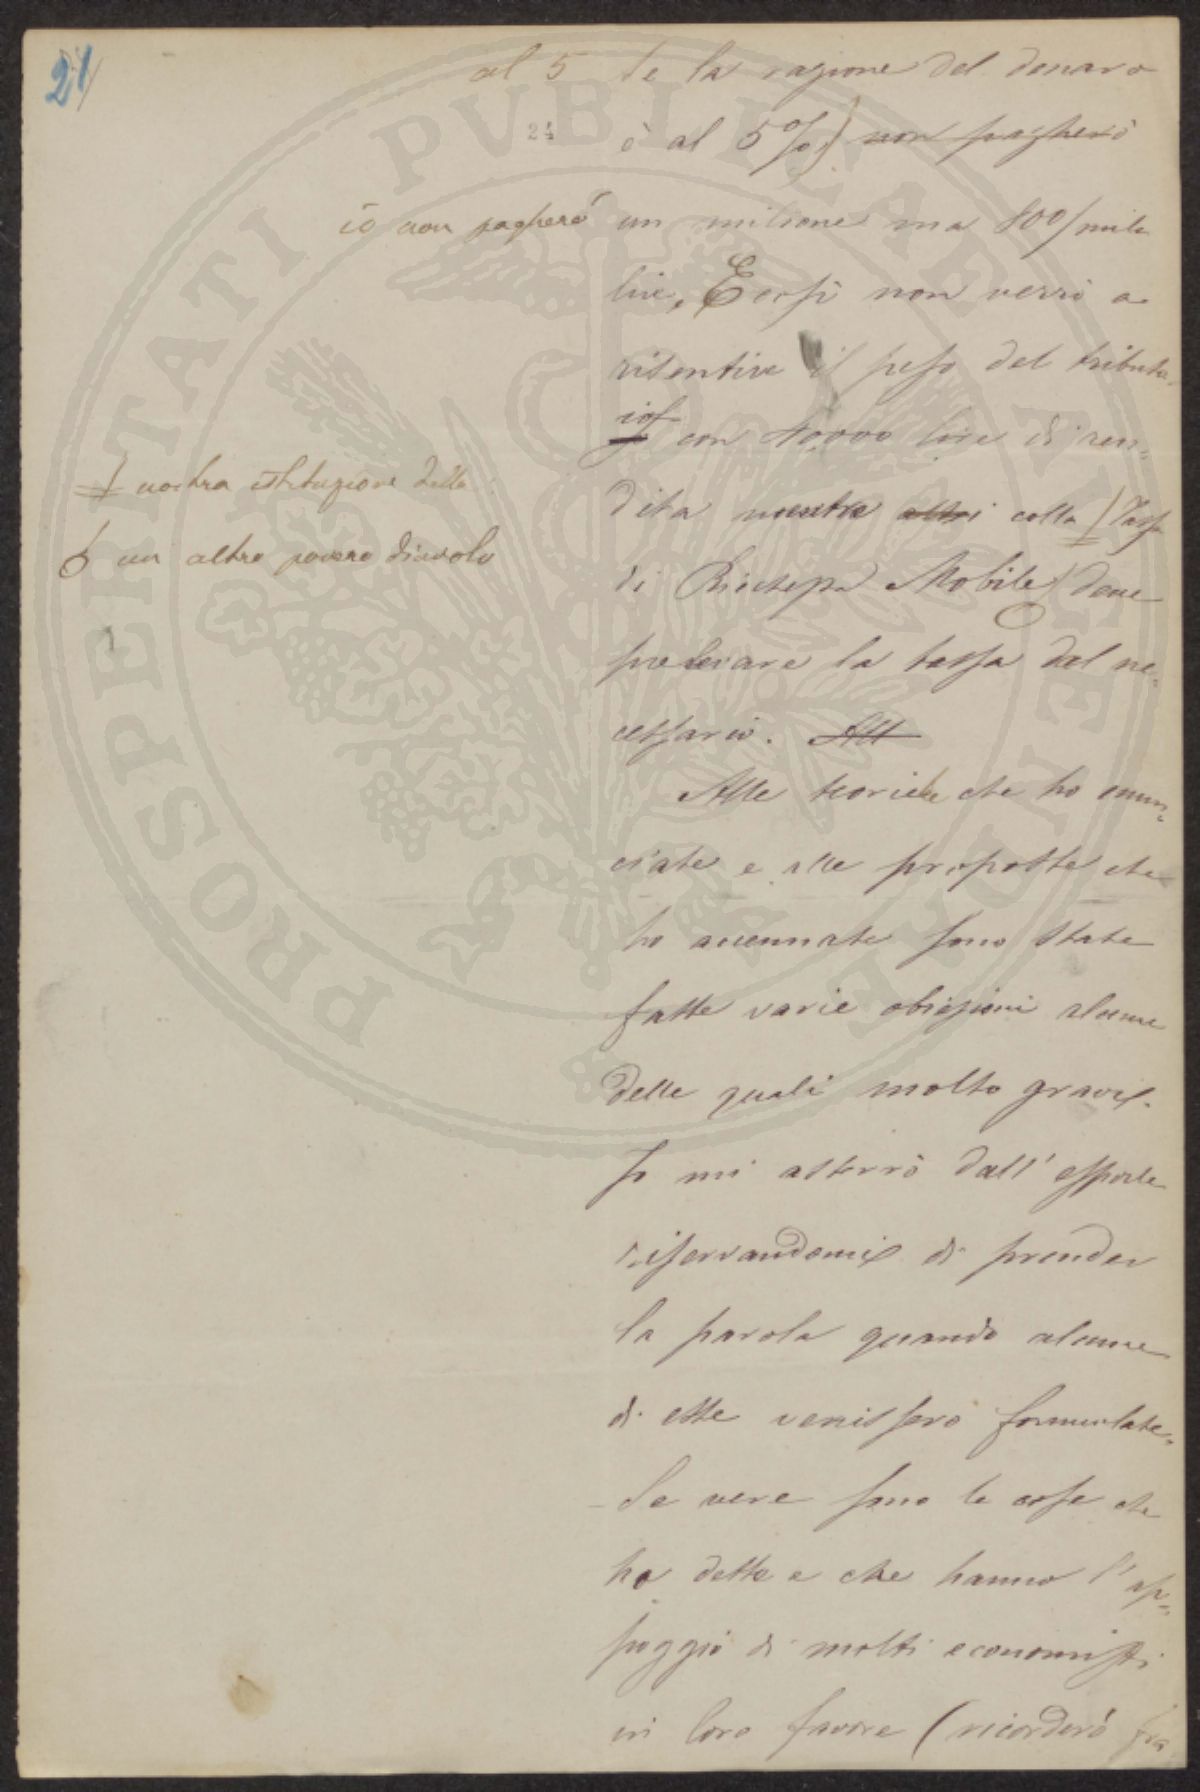 21
al 5 se la ragione del denaro
24
è al 5%) non pagherò
io non pagherò un milione ma 800/mila
lire, E così non verrò a
risentire il peso del tributo
con 40000 lire di ren-
dita mentre altri colla / Tassa
/ nostra istituzione della
di Ricchezza Mobile deve
ó un altro povero diavolo
prelevare la tassa dal ne-
cessario. All
Alle teorie che ho enun-
ciate e alle proposte che
ho accennate sono state
fatte varie obiezioni alcune
delle quali molto gravi.
Io mi asterrò dall'esporle
riservandomi di prender
la parola quando alcune
di esse venissero formulate.
Se vere sono le cose che
ho dette e che hanno l'ap-
poggio di molti economisti
in loro favore (ricorderò fra
PROSPERITATI PVBLICAE AVGENDAE